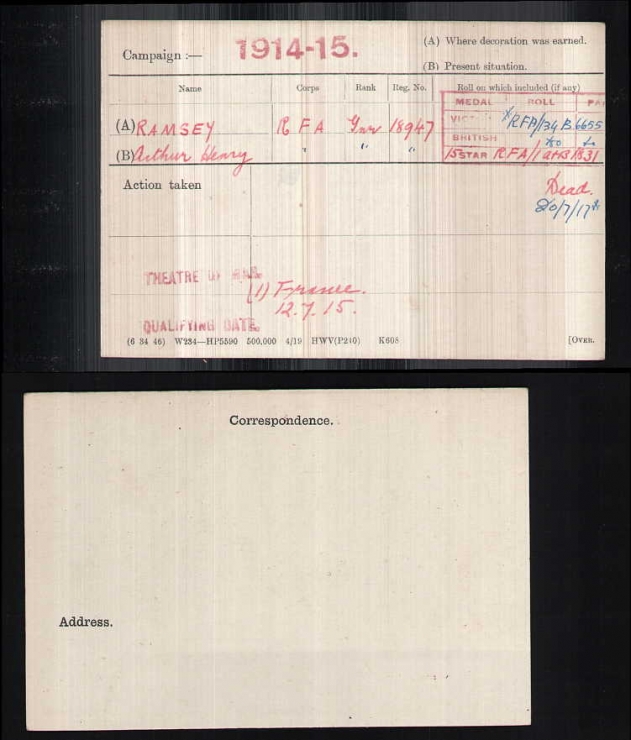 Campaign :— 1914-15.
(A) Where decoration was earned.
(B) Present situation.
Name Corps Rank Reg. No. Roll on which included (if any)
MEDAL ROLL PA
(A) RAMSEY R F A Gnr 18947
VICT RFA/134 B 6655
(B) Arthur Henry " " "
BRITISH do do
15 STAR RFA/1 1531
Action taken
Dead.
20/7/17
THEATRE OF WAR.
(1) France.
12.7.15.
QUALIFYING DATE.
(6 34 46) W234—HP5590 500,000 4/19 HWV(P240) K608 [OVER.
Correspondence.
Address.